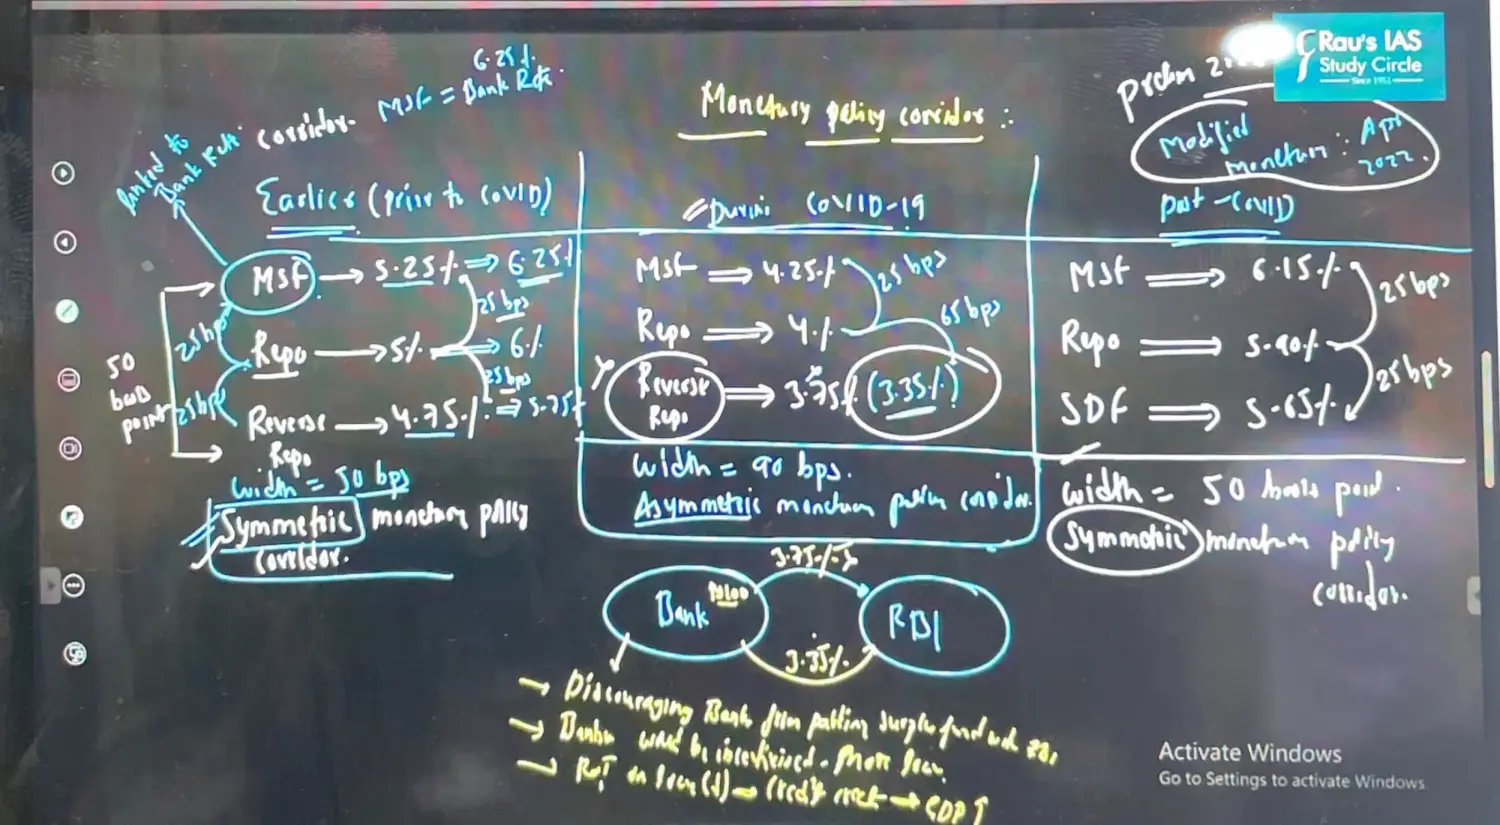 6.25%
MSF = Bank Rate
corridor.
linked to
Bank Rate
Monetary policy corridor :
Prelim
Rau's IAS
Study Circle
Since 1953
Modified
Monetary : Apr
2022.
Earlier (prior to COVID)
During COVID-19
Post-COVID
MSF → 5.25% ⇒ 6.25%
25 bps
Repo → 5% ⇒ 6%
25 bps
Reverse → 4.75% ⇒ 5.75%
Repo
25bp
25bp
50
basis
point
width = 50 bps
Symmetric monetary policy
corridor.
MSF ⇒ 4.25%
25 bps
Repo ⇒ 4%
65 bps
Reverse ⇒ 3.75% (3.35%)
Repo
width = 90 bps.
Asymmetric monetary policy corridor.
MSF ⇒ 6.15%
25 bps
Repo ⇒ 5.90%
25 bps
SDF ⇒ 5.65%
width = 50 basis point.
Symmetric monetary policy
corridor.
3.75%
Bank ₹100
RBI
3.35%
→ Discouraging Banks from parking surplus fund with RBI
→ Banks will be incentivised - more loan
→ RoI on loan (↓) → credit → GDP ↑
Activate Windows
Go to Settings to activate Windows.